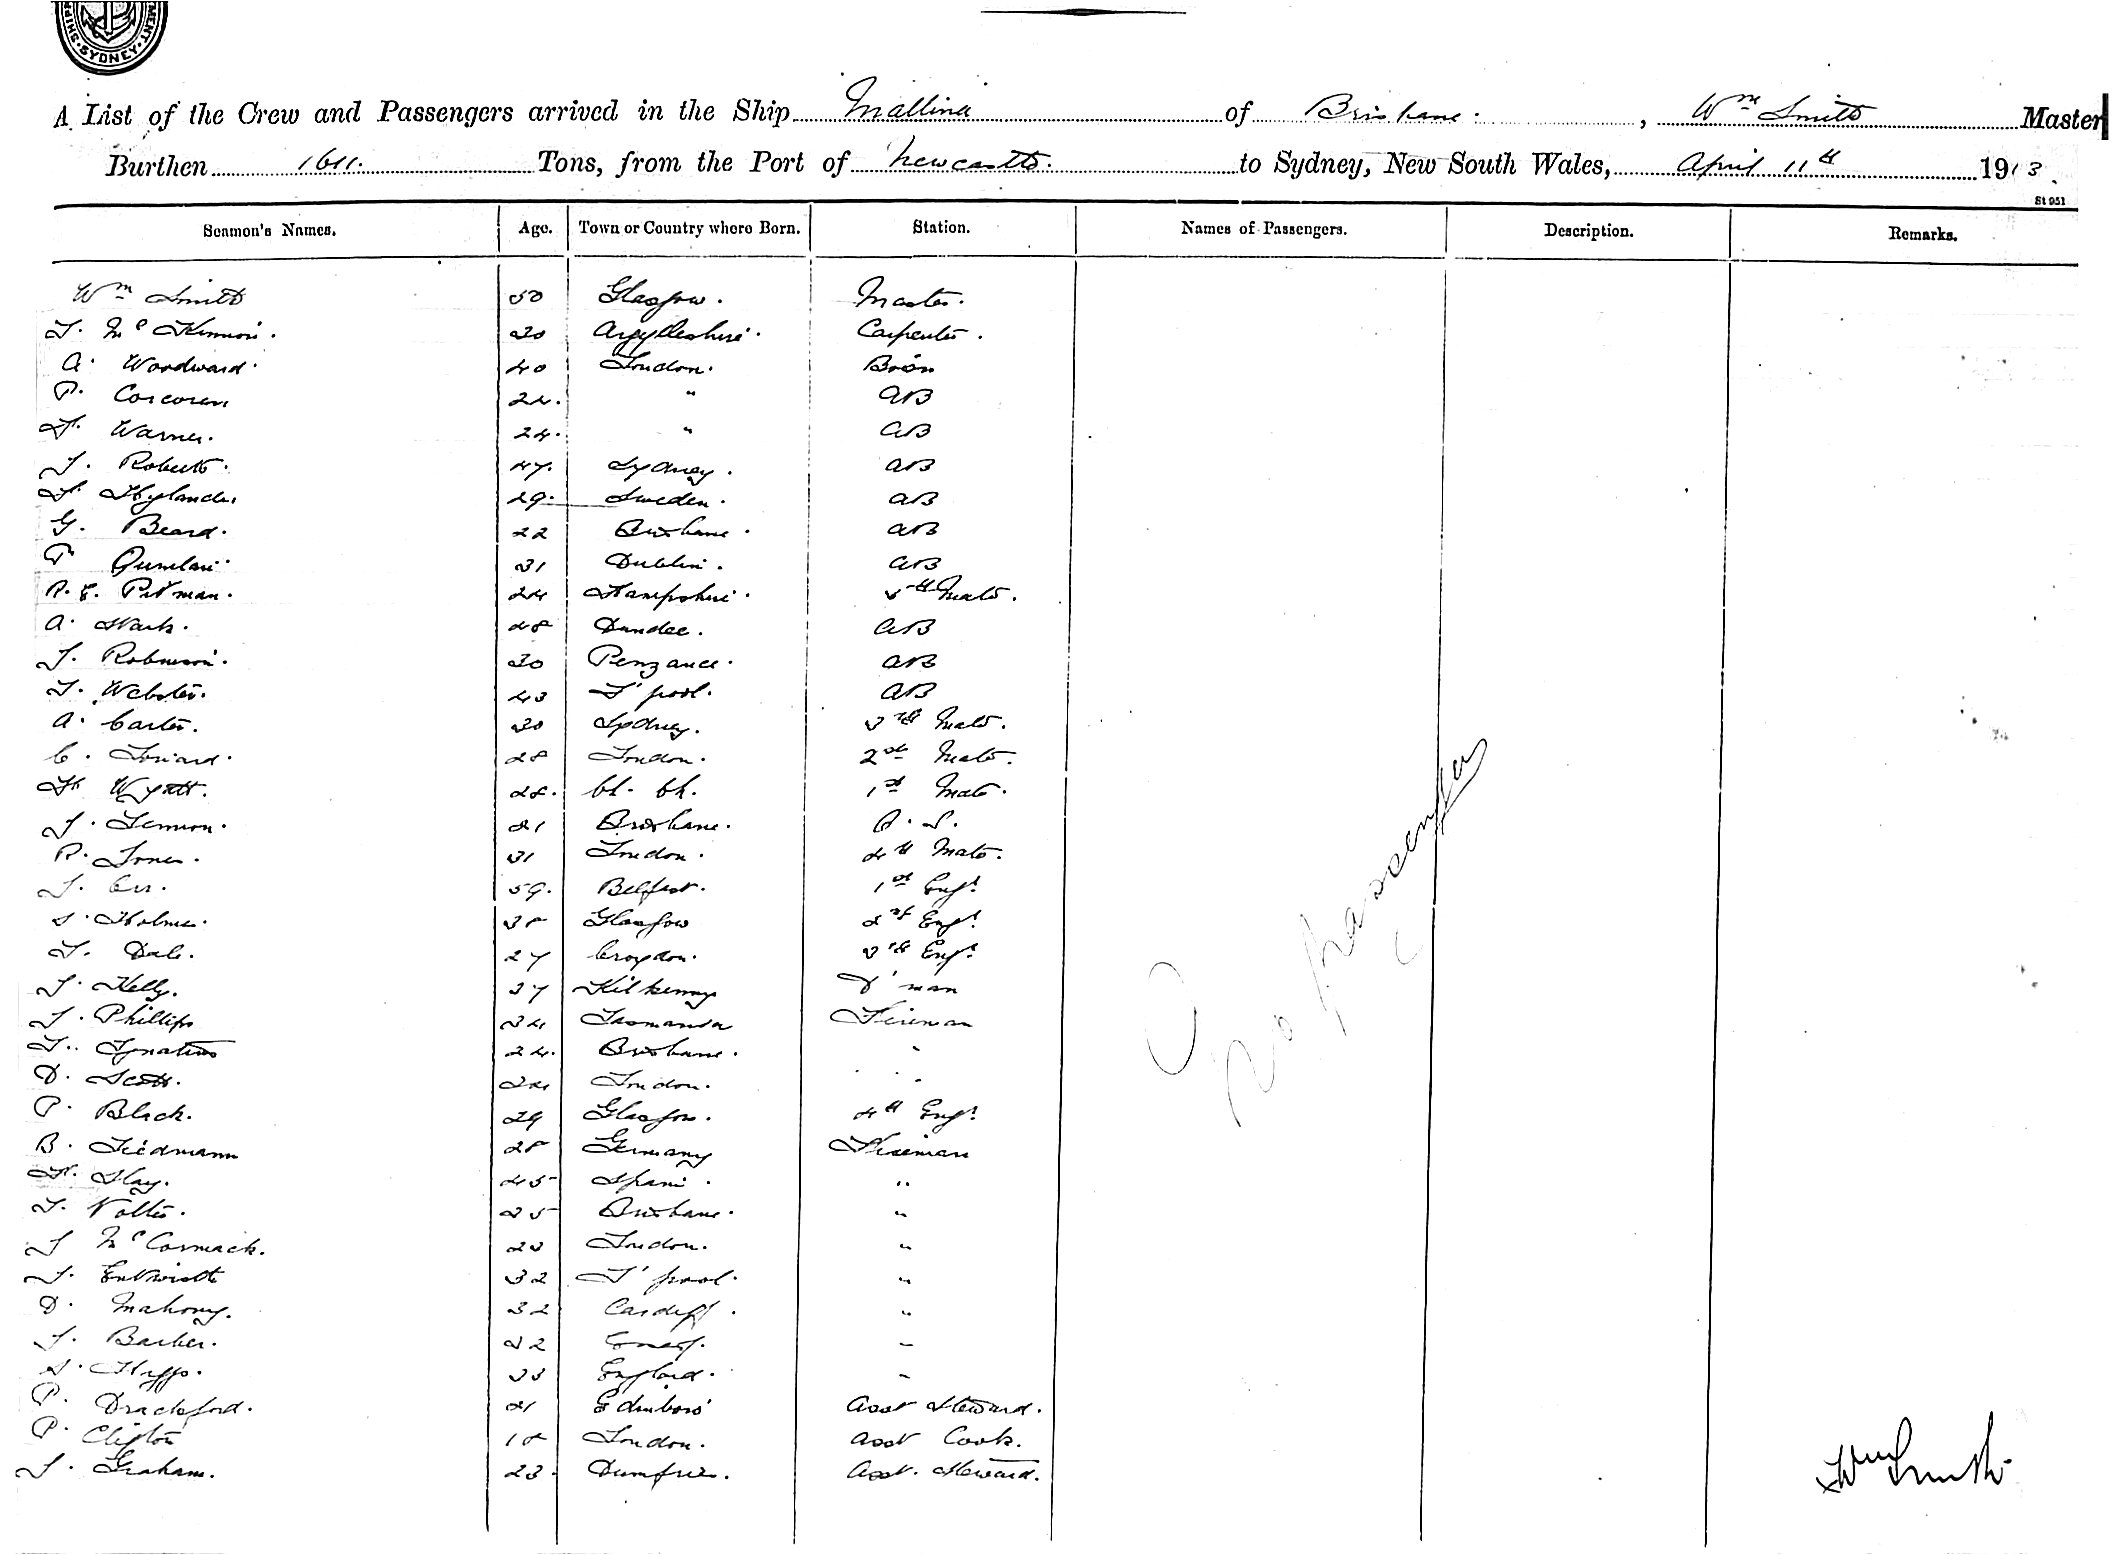 SYDNEY
A List of the Crew and Passengers arrived in the Ship Mallina of Brisbane. , Wm Smith Master
Burthen 1611. Tons, from the Port of Newcastle. to Sydney, New South Wales, April 11th 1913.
St 951
Seamen's Names. Age. Town or Country where Born. Station. Names of Passengers. Description. Remarks.
Wm Smith 50 Glasgow. Master.
J. McKinnon. 30 Argylleshire. Carpenter.
A. Woodward. 40 London. Bosn
P. Corcoran 24. " AB
F. Warner. 24. " AB
J. Roberts. 47. Sydney. AB
F. Hylander 29. Sweden. AB
G. Beard. 22 Brisbane. AB
P Quinlan 31 Dublin. AB
R. E. Pitman. 24 Hampshire. 5th Mate.
A. Stark. 48 Dundee. AB
J. Robinson. 30 Penzance. AB
J. Webster. 43 L'pool. AB
A. Carter. 30 Sydney. 3rd Mate.
C. 28 London. 2nd Mate.
H Wyatt. 28. Ch. Ch. 1st Mate.
J. Lennon. 21 Brisbane. O.S.
R. Jones. 31 London. 4th Mate.
J. 59. Belfast. 1st Engr
S. Holmes. 38 Glasgow 2nd Engr
J. Dale. 27 Croydon. 3rd Engr
J. Kelly. 37 Kilkenny D'man
J. Phillips 34 Tasmania Fireman
J. Ignatius 24. Brisbane. "
D. Scott. 24 London. "
P. Black. 29 Glasgow. 4th Engr
B. Tiedmann 28 Germany Fireman
H. Hay. 45 Spain. "
J. Nolter. 25 Brisbane. "
J McCormack. 23 London. "
J. Entwistle 32 L'pool. "
D. Mahony. 32 Cardiff. "
J. Barber. 22 "
S. 33 England. "
P. Drackford. 21 Edinboro' Asst Steward.
P. Clifton 18 London. Asst Cook.
J. Graham. 23. Dumfries. Asst. Steward.
No passengers
Wm Smith